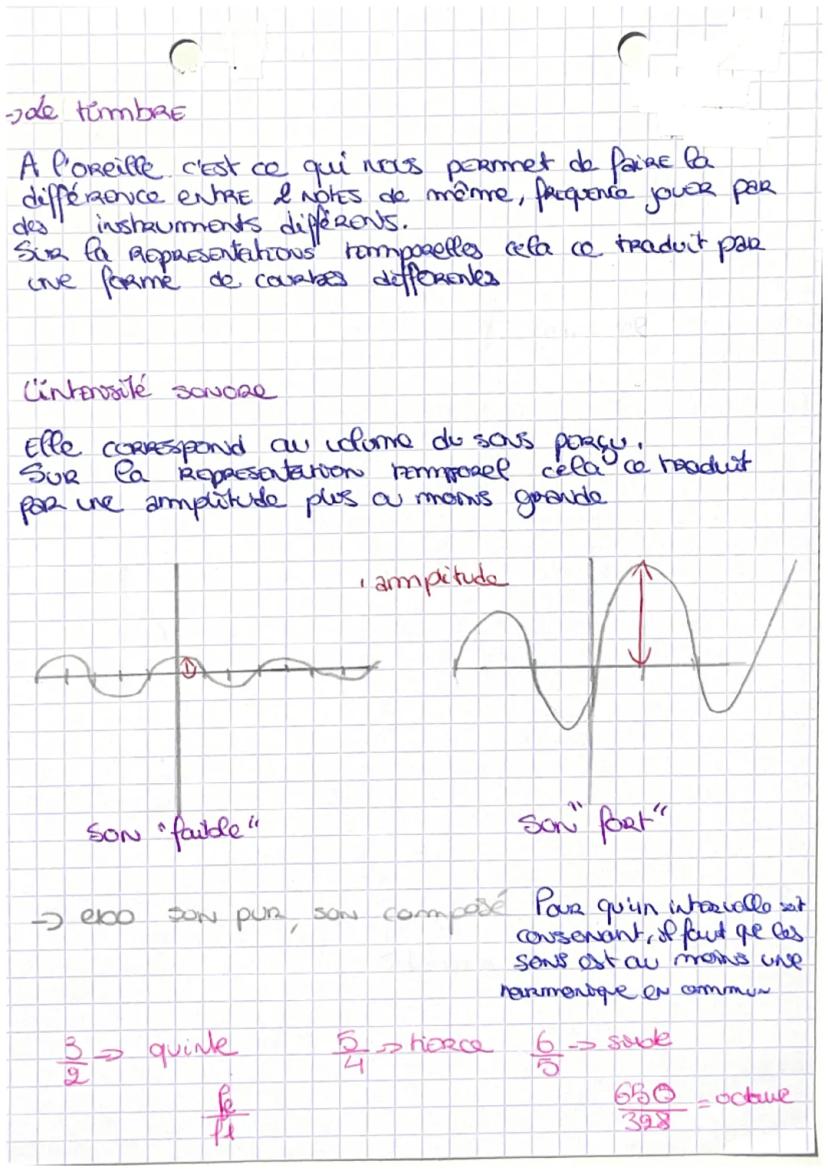 → de timbre
A l'oreille c'est ce qui nous permet de faire la
différence entre 2 notes de même, frequence jouer par
des instruments différens.
Sur la representations temporelles cela ce traduit par
une forme de courbes differentes
L'intensité sonore
Elle correspond au volume du sons perçu.
Sur la representation temporel cela ce traduit
par une amplitude plus ou moins grande
ampitude
son "faible"
son "fort"
→ exo son pur, son composé
Pour qu'un intervalle soit
consonant, il faut qe les
sons est au moins une
harmonique en commun
3/2 → quinte
5/4 → tierce
6/5 →
f2/f1
650/328 = octave